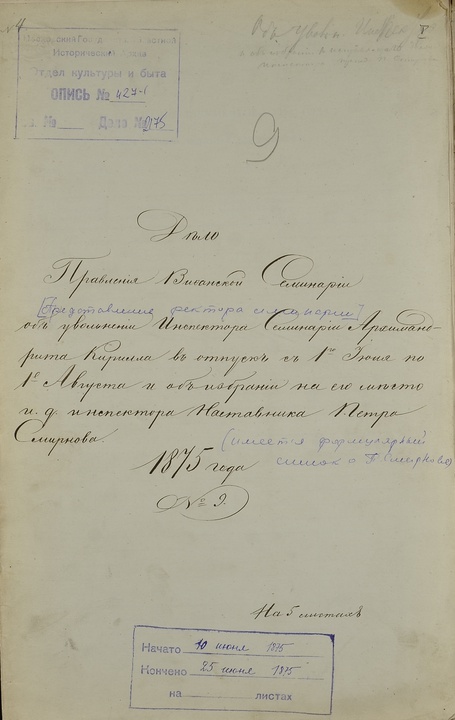 № 4
Объ уволн. Инспек
V
Исторический Архив
Отдел культуры и быта
ОПИСЬ № 427-1
№ Дело № 175
9
Дѣло
Правленія Виѳанской Семинаріи
[Представление ректора семинарии]
объ увольненіи Инспектора Семинаріи Архиманд-
рита Кирилла въ отпускъ съ 1го Іюня по
1е Августа и объ избраніи на его мѣсто
и. д. инспектора Наставника Петра
Смирнова.
(имеется формулярный
список о П. Смирнове)
1875 года
№ 9.
На 5 листахъ
Начато 10 июня 1875
Кончено 25 июня 1875
на листах